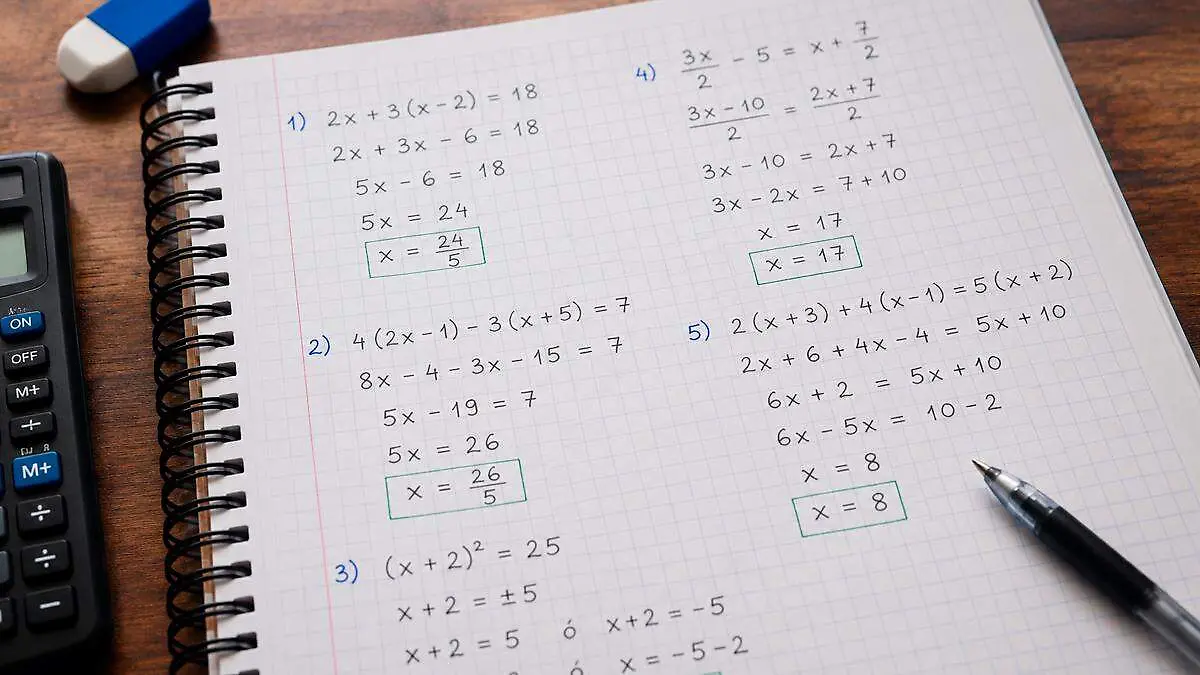 1) 2x + 3(x - 2) = 18
2x + 3x - 6 = 18
5x - 6 = 18
5x = 24
x = 24/5
2) 4(2x - 1) - 3(x + 5) = 7
8x - 4 - 3x - 15 = 7
5x - 19 = 7
5x = 26
x = 26/5
3) (x + 2)² = 25
x + 2 = ±5
x + 2 = 5 ó x + 2 = -5
ó x = -5 - 2
4) 3x/2 - 5 = x + 7/2
(3x - 10)/2 = (2x + 7)/2
3x - 10 = 2x + 7
3x - 2x = 7 + 10
x = 17
x = 17
5) 2(x + 3) + 4(x - 1) = 5(x + 2)
2x + 6 + 4x - 4 = 5x + 10
6x + 2 = 5x + 10
6x - 5x = 10 - 2
x = 8
x = 8
ON
OFF
M+
+
M+
÷
÷
−